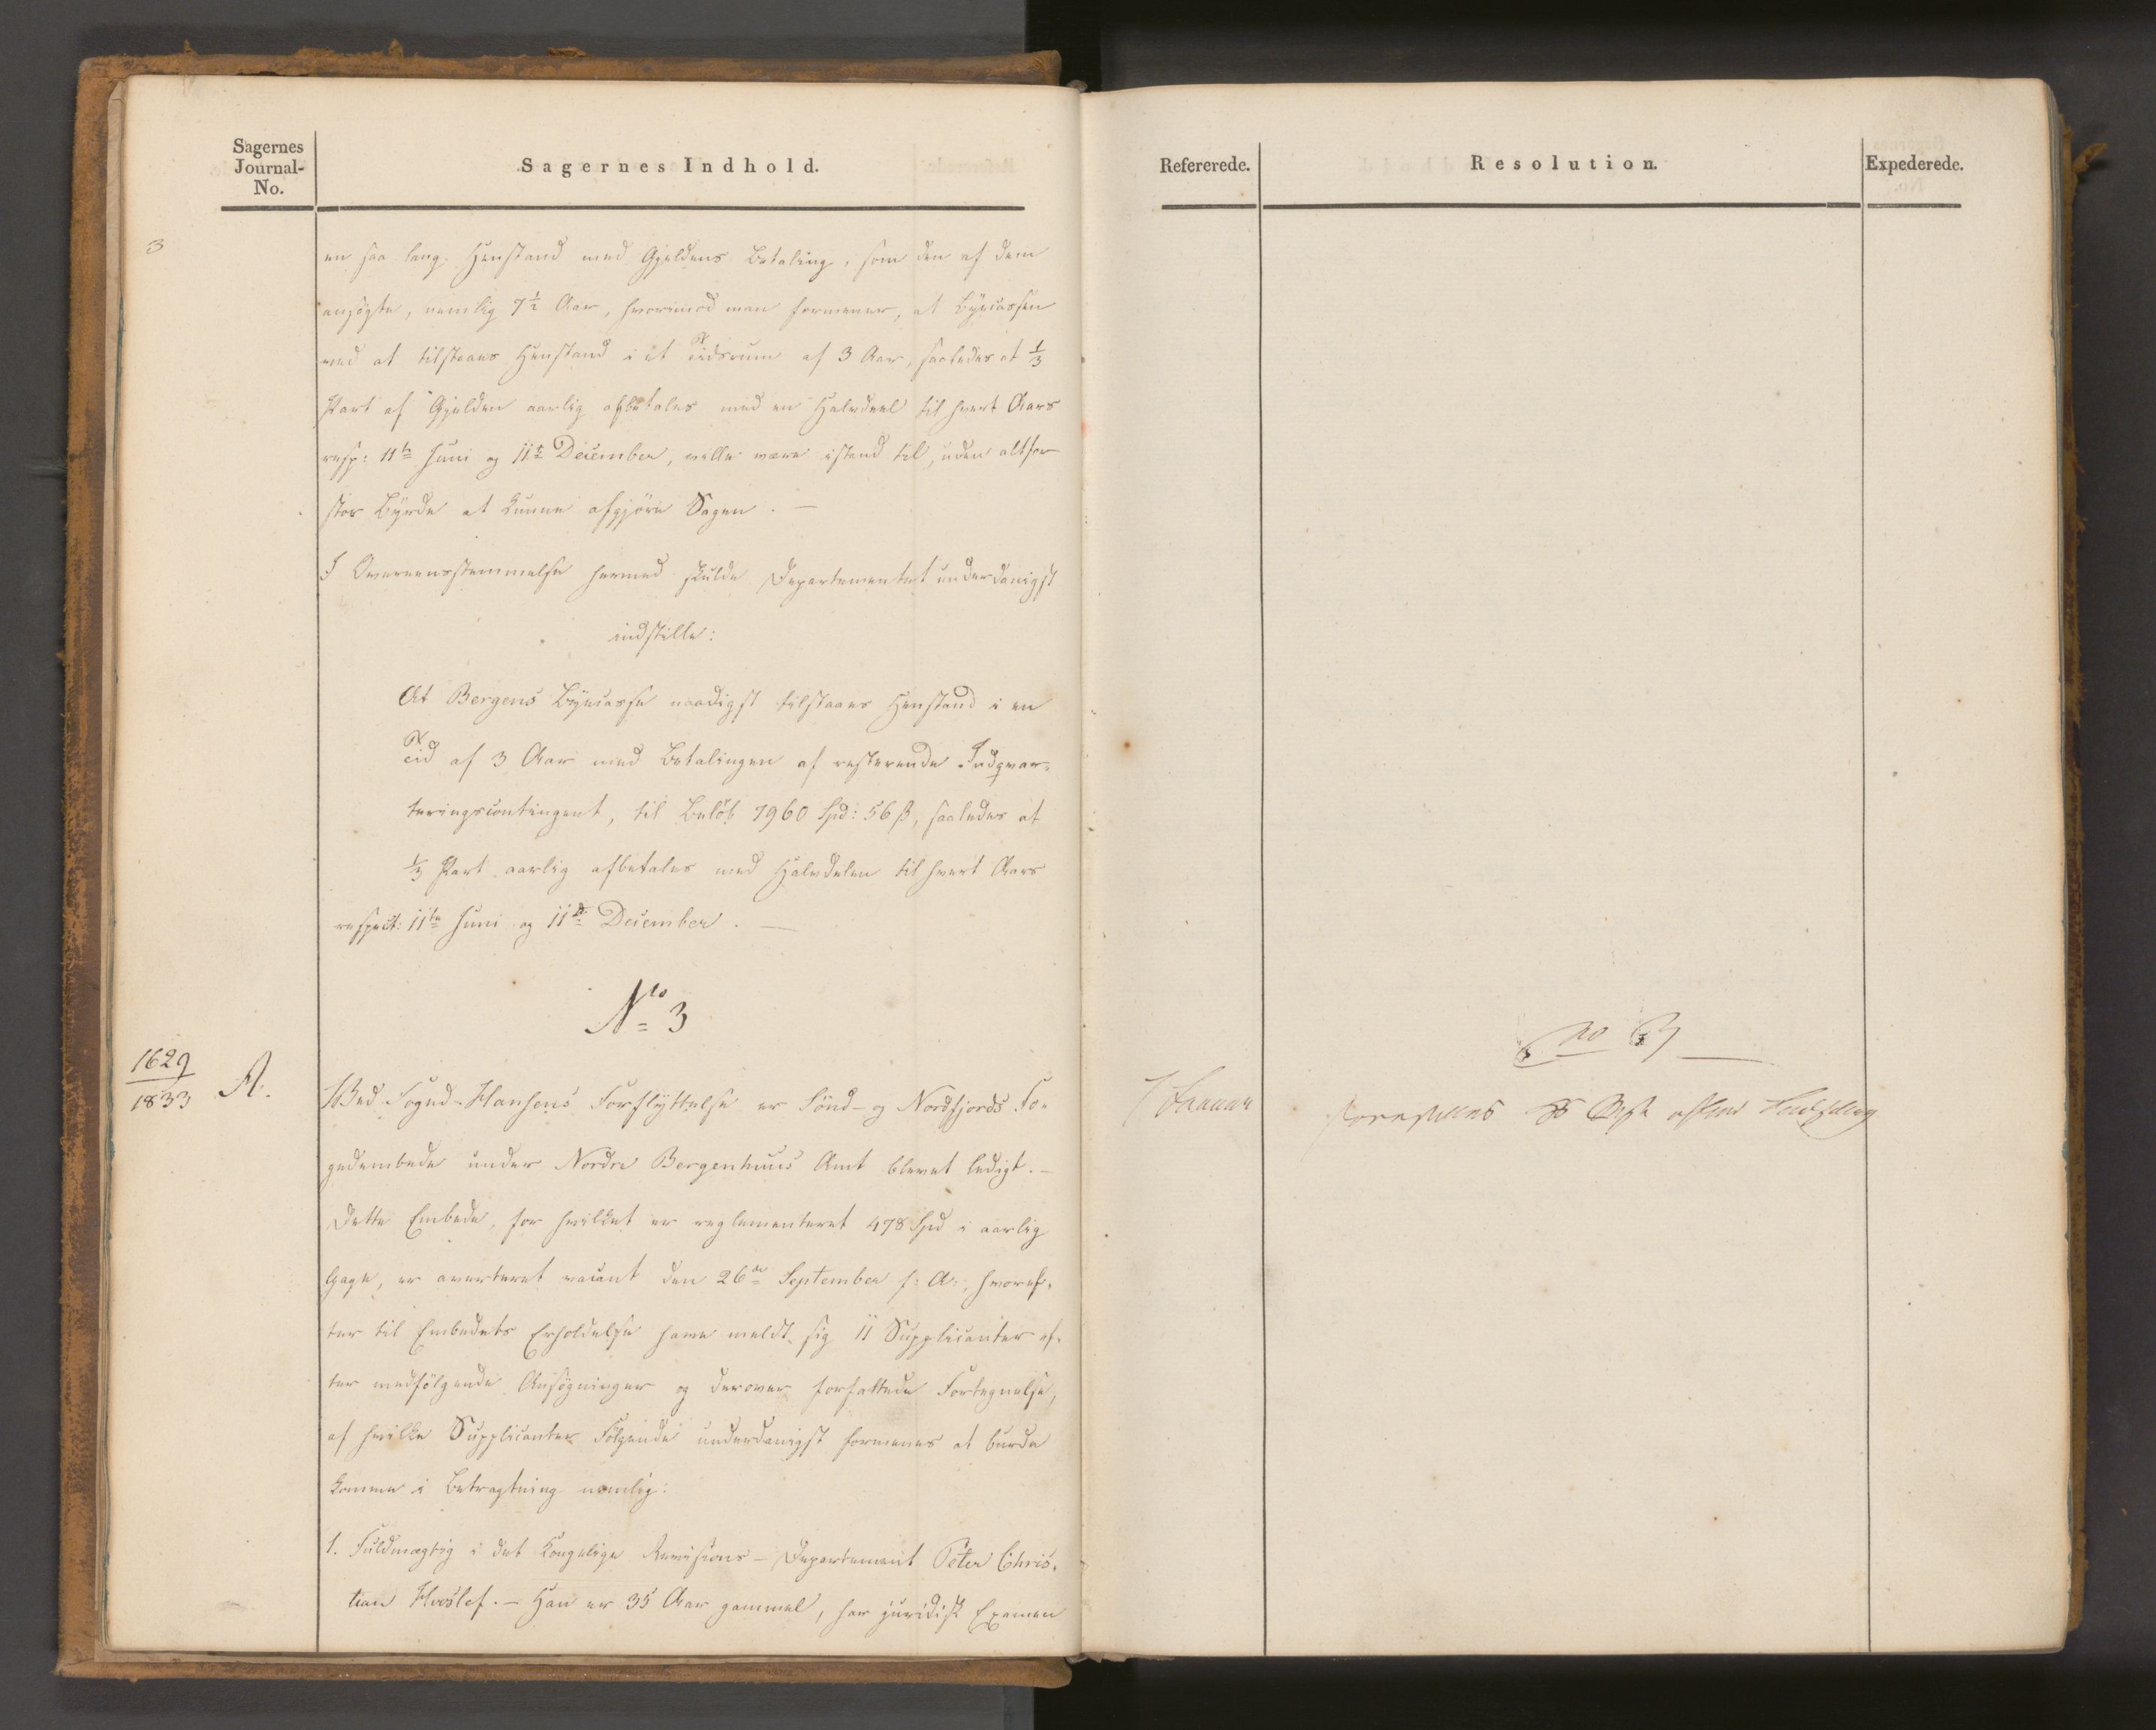 Sagernes
Journal-
No.
Sagernes Indhold.
3
en saa lang Henstand med Gjeldens Betaling, som den af dem
ansøgte, nemlig 7½ Aar, hvorimod man formener, at Byecassen
ved at tilstaaes Henstand i et Tidsrum af 3 Aar, saaledes at ⅓
Part af Gjelden aarlig afbetales med en Halvdeel til hvert Aars
resp: 11te Juni og 11te December, ville være istand til, uden altfor
stor Byrde at kunne afgjøre Sagen. —
I Overeensstemmelse hermed skulde Departementet underdanigst
indstille:
At Bergens Byecasse naadigst tilstaaes Henstand i en
Tid af 3 Aar med Betalingen af resterende Indqvar-
teringscontingent, til Beløb 7960 Spd: 56 ß, saaledes at
⅓ Part aarlig afbetales med Halvdelen til hvert Aars
respect: 11te Juni og 11te December. —
No 3
1629
1833
A.
Ved Foged Hansens Forflyttelse er Sönd- og Nordfjords Fo-
gedembede under Nordre Bergenhuus Amt blevet ledigt. —
Dette Embede, for hvilket er reglementeret 478 Spd i aarlig
Gage, er averteret vacant den 26de September f: A:, hvoref-
ter til Embedets Erholdelse have meldt sig 11 Supplicanter ef-
ter medfölgende Ansögninger og derover forfattede Fortegnelse,
af hvilke Supplicanter Fölgende underdanigst formenes at burde
komme i Betragtning nemlig:
1. Fuldmægtig i det Kongelige Revisions-Departement Peter Chris-
tian Hvoslef. — Han er 35 Aar gammel, har juridisk Examen
Refererede.
Resolution.
Expederede.
No 3
7 Januar